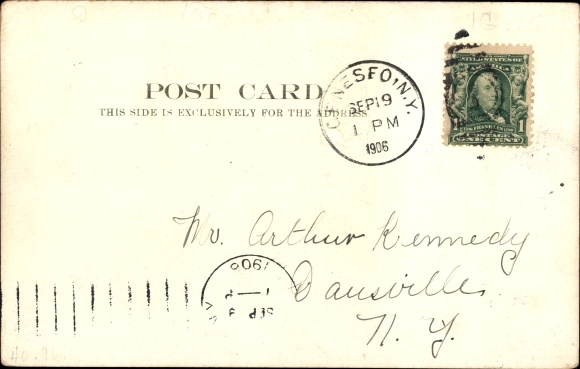 POST CARD
THIS SIDE IS EXCLUSIVELY FOR THE ADDRESS
GENESEO, N.Y.
SEP 19
1 PM
1906
UNITED STATES OF
AMERICA
FRANKLIN
POSTAGE
1
ONE CENT
Mr. Arthur Kennedy
Dansville
N. Y.
SEP
1906